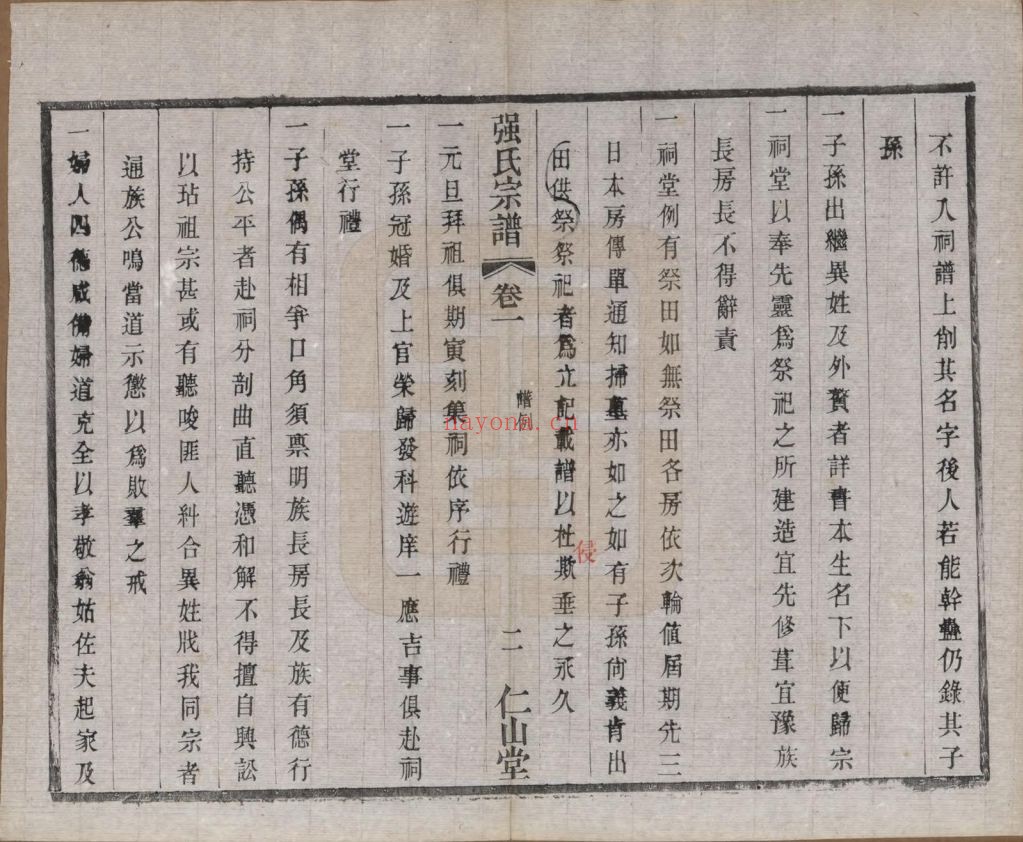 不許入祠譜上削其名字後人若能幹蠱仍錄其子
孫
一子孫出繼異姓及外贅者詳書本生名下以便歸宗
一祠堂以奉先靈爲祭祀之所建造宜先修葺宜豫族
長房長不得辭責
一祠堂例有祭田如無祭田各房依次輪值屆期先三
日本房傳單通知掃墓亦如之如有子孫尙義肯出
田供祭祭祀者爲立記載譜以杜欺垂之永久
强氏宗譜 卷一 譜例 二 仁山堂
一元旦拜祖俱期寅刻集祠依序行禮
一子孫冠婚及上官榮歸發科遊庠一應吉事俱赴祠
堂行禮
一子孫偶有相爭口角須票明族長房長及族有德行
持公平者赴祠分剖曲直聽憑和解不得擅自興訟
以玷祖宗甚或有聽唆匪人糾合異姓戕我同宗者
通族公鳴當道示懲以爲敗羣之戒
一婦人四德咸備婦道克全以孝敬翁姑佐夫起家及
nayona.cn
侵